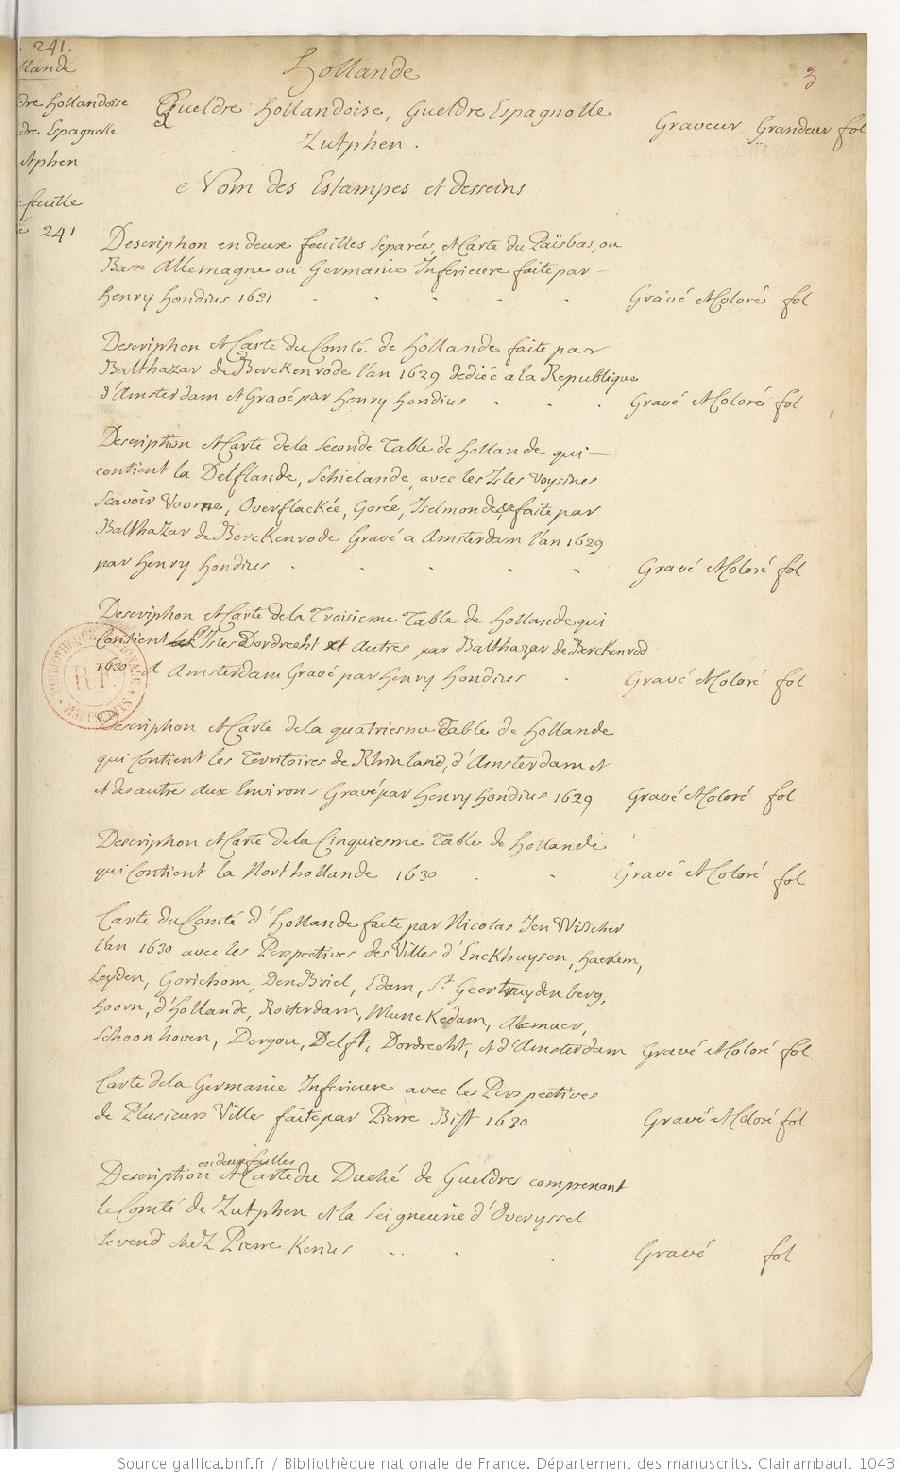 241.
llande
dre Hollandoise
dre. Espagnolle
utphen
feuille
241
3
Hollande
Gueldre Hollandoise, Gueldre Espagnolle
Zutphen.
Graveur Grandeur fol
Nom des Estampes et desseins
Description en deux feuilles separées, et Carte du Païsbas, ou
Basse Allemagne ou Germanie Inferieure faite par
Henry Hondius 1631 Gravé et Coloré fol
Description et Carte du Comté de Hollande faite par
Balthazar de Berckenrode l'an 1629 dediée a la Republique
d'Amsterdam et Gravé par Henry Hondius Gravé et Coloré fol
Description et Carte de la Seconde Table de Hollande qui
contient la Delflande, Schielande, avec les Isles Voysines
Scavoir Voorne, Overflackée, Gorée, Iselmonde, faite par
Balthazar de Berckenrode Gravé a Amsterdam l'an 1629
par Henry Hondius Gravé et Coloré fol
Description et Carte de la Troisieme Table de Hollande qui
Contient Isles Dordrecht et Autres par Balthazar de Berckenrod
1630 et Amsterdam Gravé par Henry Hondius Gravé et Coloré fol
BIBLIOTHEQUE NATIONALE
R F
MANUSCRITS
Description et Carte de la quatriesme Table de Hollande
qui Contient les Territoires de Rhinland, d'Amsterdam et
et des autres aux Environs Gravé par Henry Hondius 1629 Gravé et Coloré fol
Description et Carte de la Cinquiesme Table de Hollande
qui Contient la Northollande 1630 Gravé et Coloré fol
Carte du Comté d'Hollande faite par Nicolas Jen Wischer
l'an 1630 avec les Perspectives des Villes d'Enckhuysen, Haerlem,
Leyden, Gorichom, Den Briel, Edam, St. Geertruydenberg,
Hoorn, d'Hollande, Rotterdam, Munekedam, Alemaer,
Schoonhoven, Dergou, Delft, Dordrecht, et d'Amsterdam Gravé et Coloré fol
Carte de la Germanie Inferieure avec les Perspectives
de Plusieurs Villes faite par Pierre Bift 1630 Gravé et Coloré fol
en deux feuilles
Description et Carte du Duché de Gueldres comprenant
le Comté de Zutphen et la Seigneurie d'Overyssel
se vend chez Pierre Kerius Gravé fol
Source gallica.bnf.fr / Bibliothèque nationale de France. Département des manuscrits. Clairambault. 1043